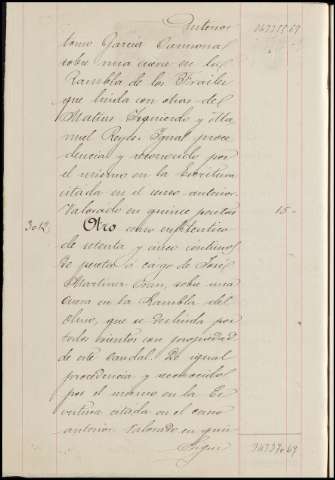 Antonio
tomo García Carmona
sobre una cueva en la
Rambla de los Pirailes
que linda con otras de
Matias Izquierdo y Ma
nuel Reyes. Igual proce
dencia y reconocido por
el mismo en la Escritura
citada en el censo anterior.
Valorado en quince pesetas 15 -
3012 Otro censo enfitéutico
de setenta y cinco céntimos
de peseta a cargo de José
Martinez, sobre una
cueva en la Rambla del
que se deslinda por
todos vientos con propiedad
de este caudal. De igual
procedencia y reconocido
por el mismo en la Es
critura citada en el censo
anterior. Valorado en quin
Sigue